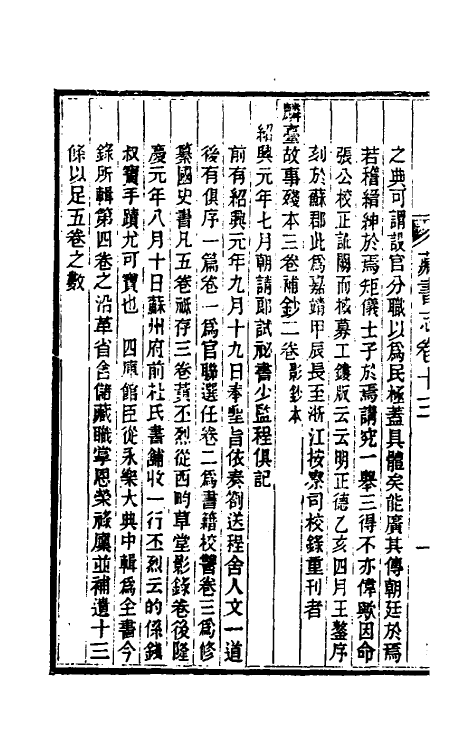 藏書志卷十三　一
之典可謂設官分職以爲民極蓋具體矣能廣其傳朝廷於焉
若稽縉紳於焉矩儀士子於焉講究一舉三得不亦偉歟因命
張公校正訛闕而核募工鏤版云云明正德乙亥四月王鏊序
刻於蘇郡此爲嘉靖甲辰長至浙江按察司校錄重刊者
麟臺故事殘本三卷補鈔二卷影鈔本
紹興元年七月朝請郎試祕書少監程俱記
前有紹興元年九月十九日奉聖旨依奏劄送程舍人文一道
後有俱序一篇卷一爲官聯選任卷二爲書籍校讎卷三爲修
纂國史書凡五卷祇存三卷黃丕烈從西畇草堂影錄卷後隆
慶元年八月十日蘇州府前杜氏書鋪收一行丕烈云的係錢
叔寶手蹟尤可寶也　四庫館臣從永樂大典中輯爲全書今
錄所輯第四卷之沿革省舍儲藏職掌恩榮祿廩並補遺十三
條以足五卷之數